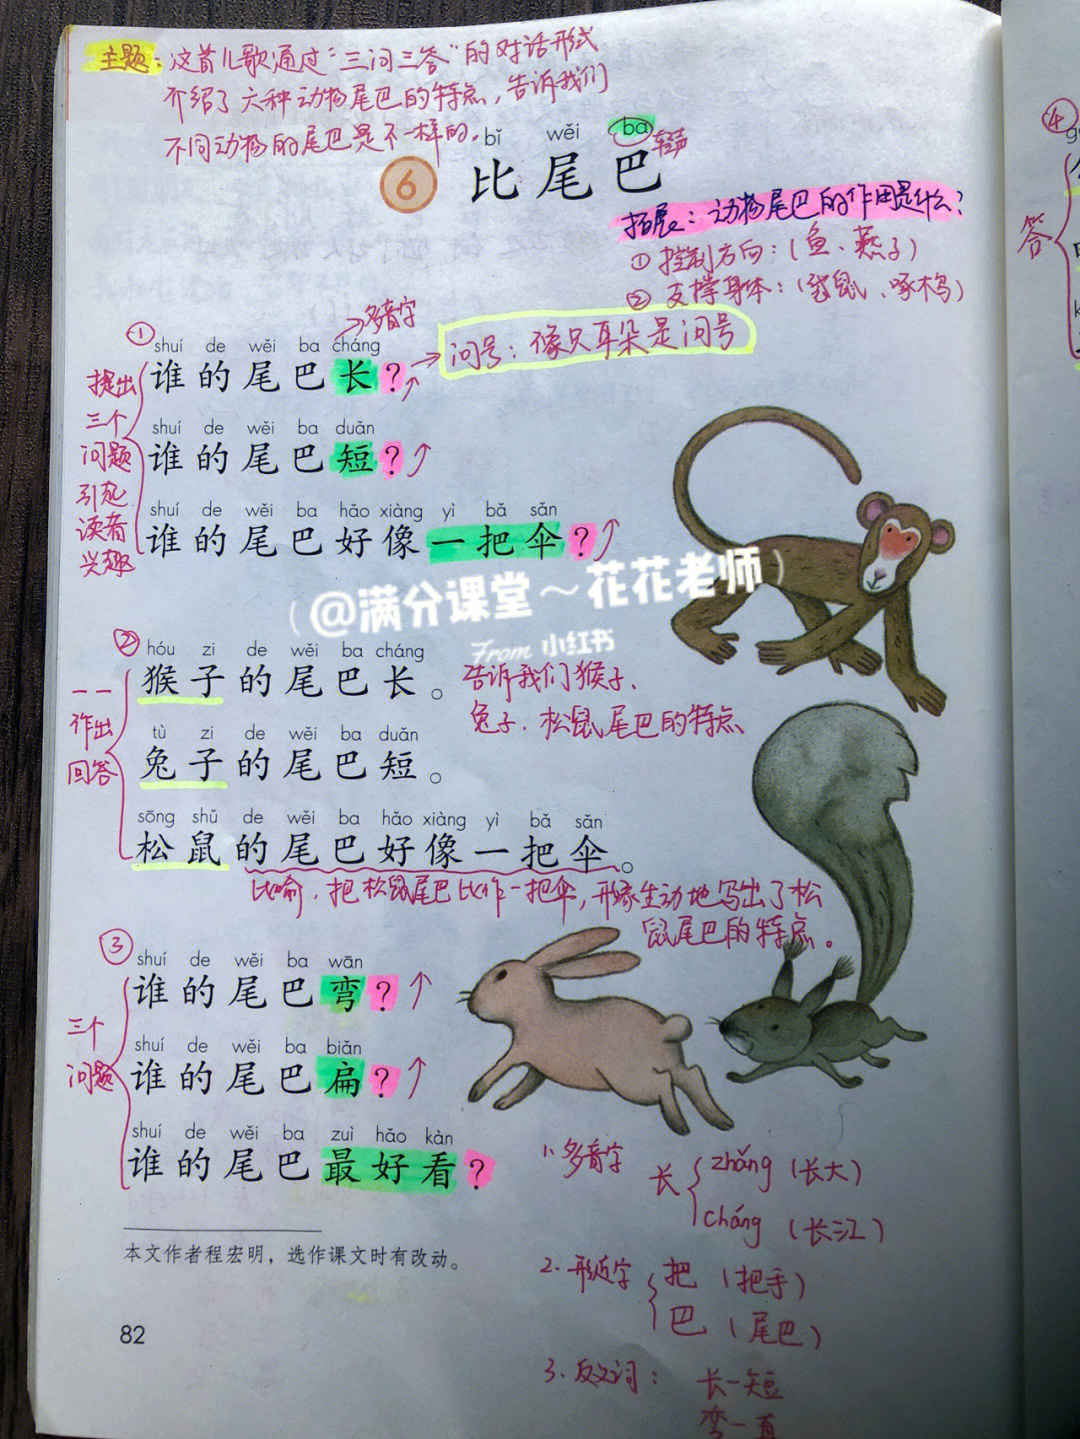 主题：这首儿歌通过“三问三答”的对话形式
介绍了六种动物尾巴的特点，告诉我们
不同动物的尾巴是不一样的。
bǐ wěi ba
6 比尾巴
轻声
拓展：动物尾巴的作用是什么？
①控制方向：（鱼、燕子）
②支撑身体：（袋鼠、啄木鸟）
④
答
①
多音字
问号：像只耳朵是问号
提出
三个
问题
引起
读者
兴趣
shuí de wěi ba cháng
谁的尾巴长？
shuí de wěi ba duǎn
谁的尾巴短？
shuí de wěi ba hǎo xiàng yì bǎ sǎn
谁的尾巴好像一把伞？
（@满分课堂～花花老师）
From 小红书
②
一一
作出
回答
hóu zi de wěi ba cháng
猴子的尾巴长。
告诉我们猴子、
兔子、松鼠尾巴的特点
tù zi de wěi ba duǎn
兔子的尾巴短。
sōng shǔ de wěi ba hǎo xiàng yì bǎ sǎn
松鼠的尾巴好像一把伞。
比喻，把松鼠尾巴比作一把伞，形象生动地写出了松
鼠尾巴的特点。
③
三个
问题
shuí de wěi ba wān
谁的尾巴弯？
shuí de wěi ba biǎn
谁的尾巴扁？
shuí de wěi ba zuì hǎo kàn
谁的尾巴最好看？
1.多音字 长 zhǎng（长大）
cháng（长江）
本文作者程宏明，选作课文时有改动。
2.形近字 把（把手）
巴（尾巴）
82
3.反义词：长—短
弯—直